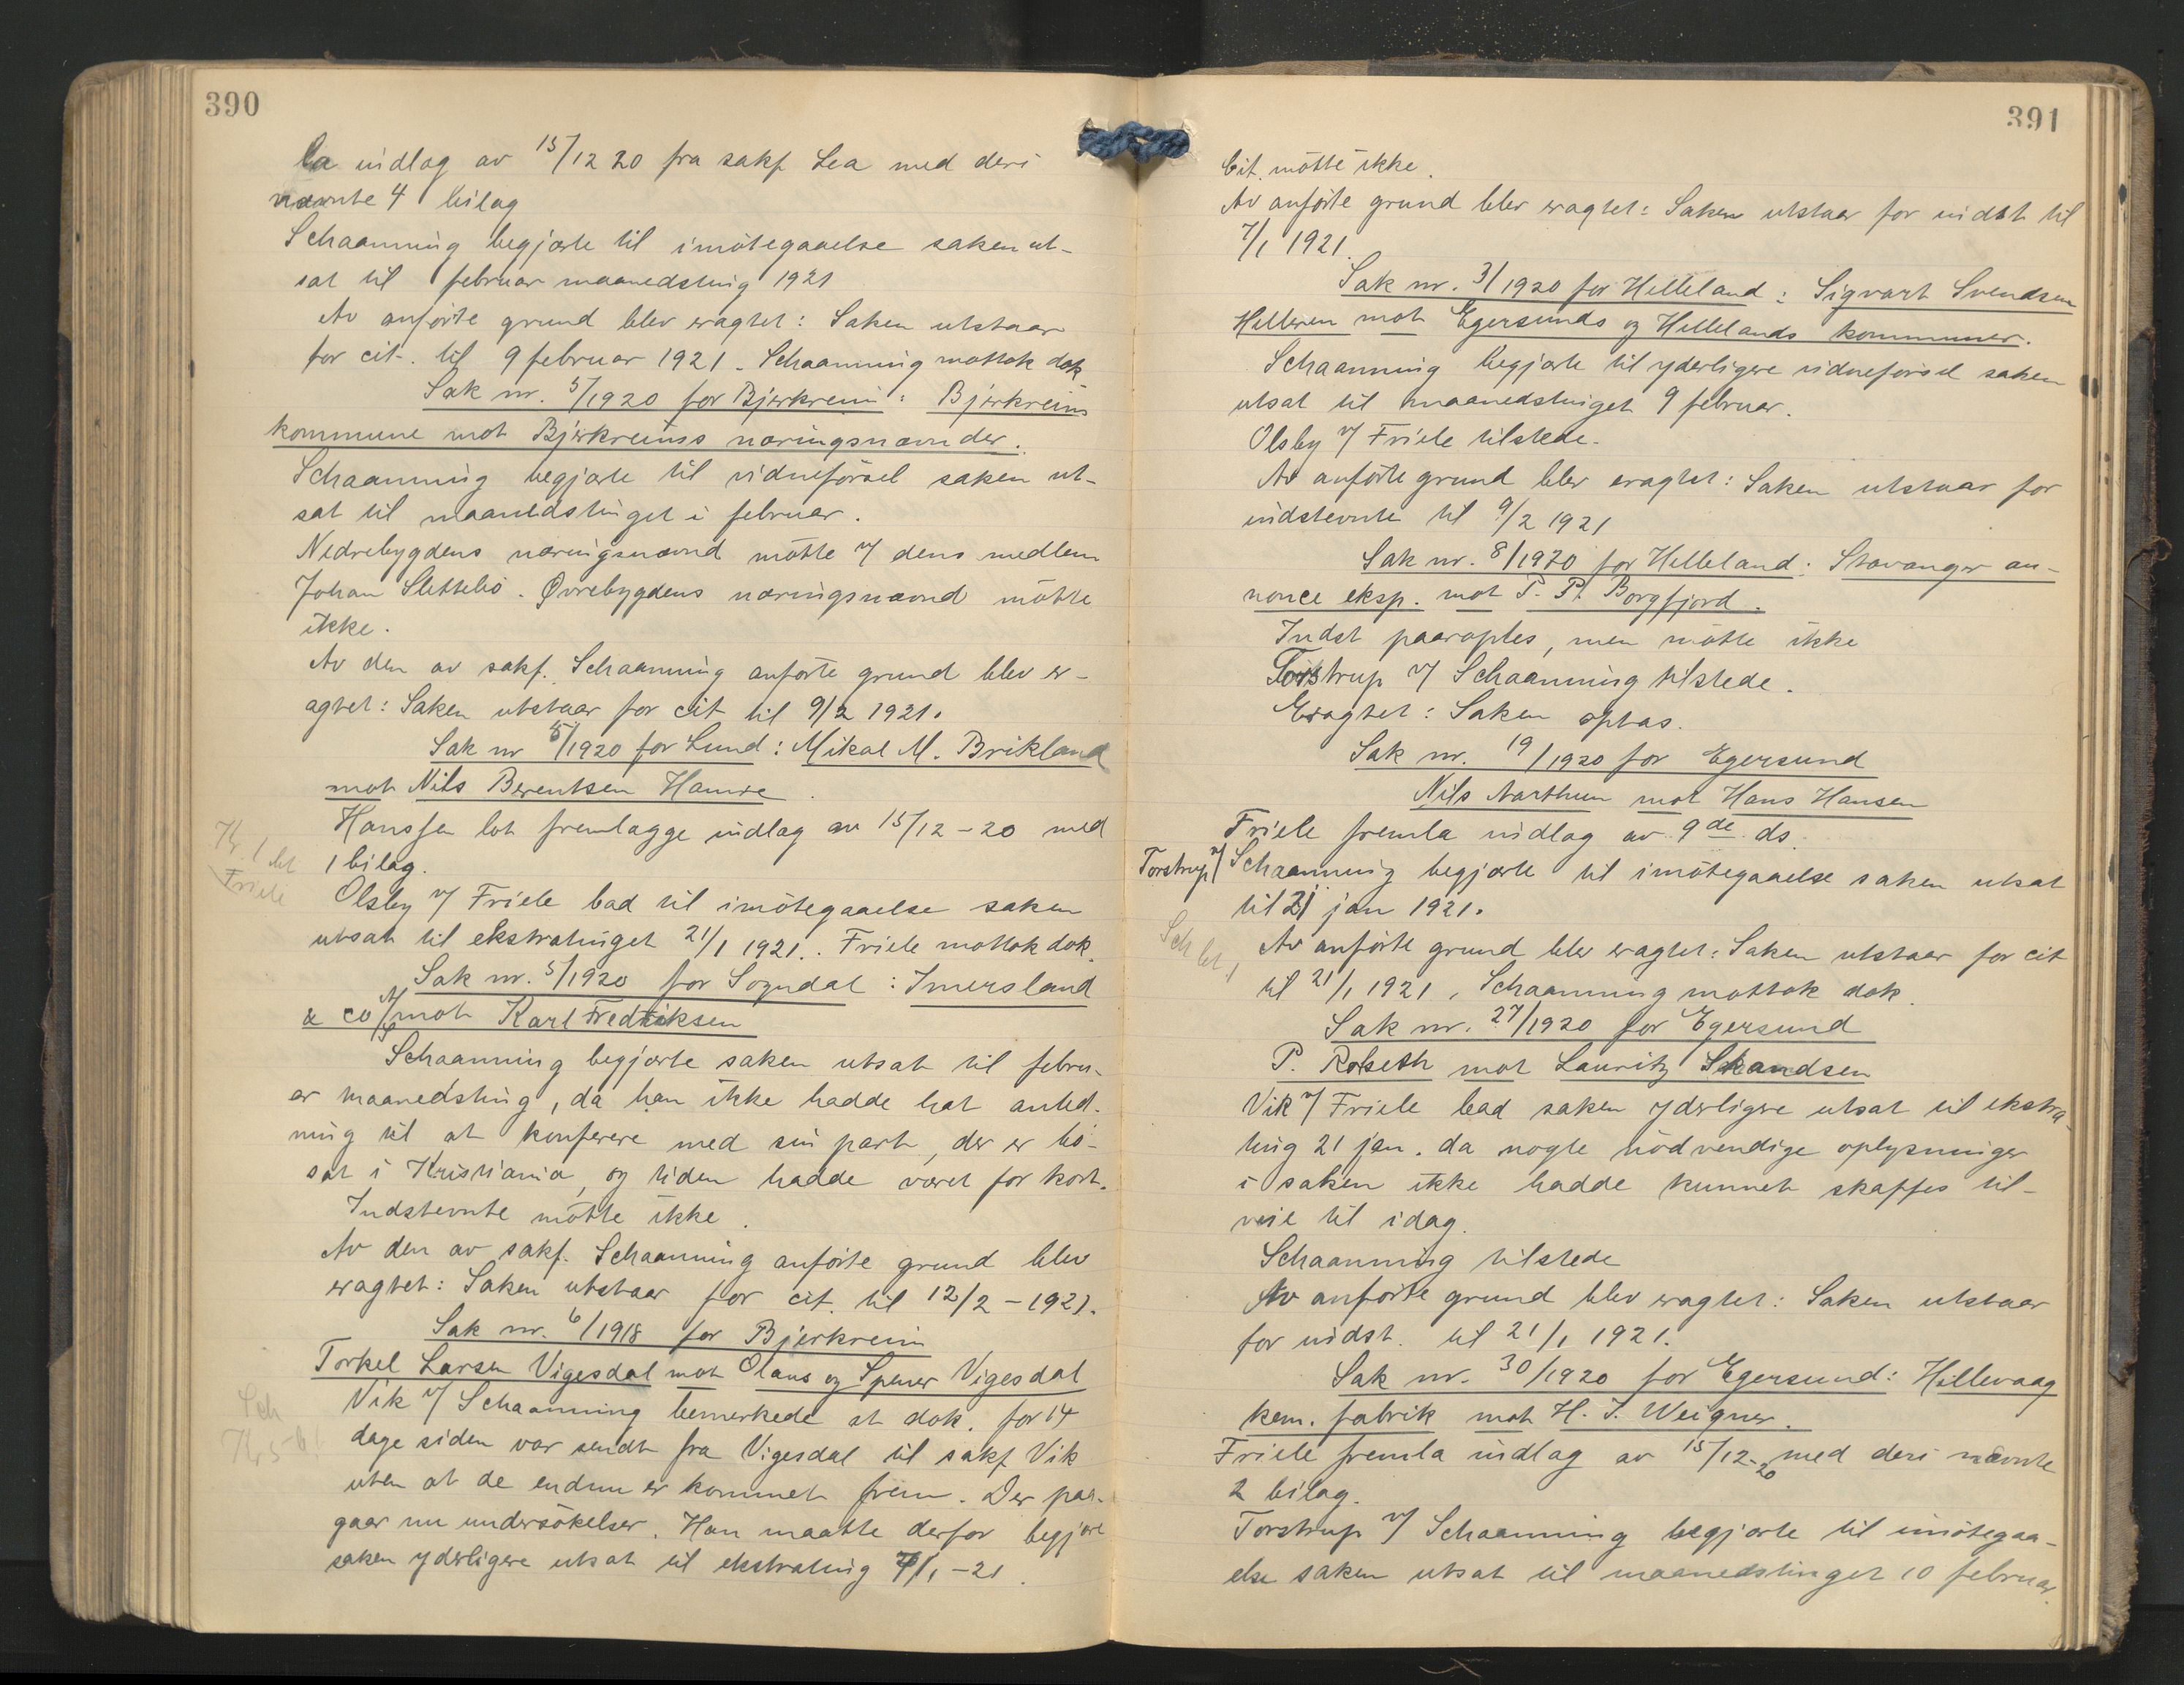 390
la indlæg av 15/12 20 fra sakf Lea med deri
nævnte 4 bilag
Schaanning begjærte til imøtegaaelse saken ut-
sat til februar maanedsting 1921
Av anførte grund blev eragtet: Saken utstaar
for cit. til 9 februar 1921. Schaanning mottok dok
Sak nr. 5/1920 for Bjerkreim: Bjerkreim
kommune mot Bjerkreims næringsnævnder.
Schaanning begjærte til vidneførsel saken ut-
sat til maanedstinget i februar.
Nedrebygdens næringsnævnd møtte v/ dens medlem
Johan Slettebø. Øvrebygdens næringsnævnd møtte
ikke.
Av den av sakf. Schaanning anførte grund blev er-
agtet: Saken utstaar for cit til 9/2 1921.
Sak nr 5/1920 for Lund: Mikal M. Birkland
mot Nils Berentsen Hamre.
Hanssen lot fremlægge indlæg av 15/12-20 med
1 bilag.
Friele
Olsby v/ Friele bad til imøtegaaelse saken
utsat til ekstratinget 21/1 1921. Friele mottok dok.
Sak nr. 5/1920 for Sogndal: Imersland
& co mot Karl Fredriksen
Schaanning begjærte saken utsat til febru-
ar maanedsting, da han ikke hadde hat anled-
ning til at konferere med sin part, der er bo-
sat i Kristiania, og tiden hadde været for kort.
Indstevnte møtte ikke.
Av den av sakf. Schaanning anførte grund blev
eragtet: Saken utstaar for cit. til 12/2-1921.
Sak nr. 6/1918 for Bjerkreim
Torkel Larsen Vigesdal mot Olaus og Spener Vigesdal
Vik v/ Schaanning bemerkede at dok. for 14
dage siden var sendt fra Vigesdal til sakf Vik
uten at de endnu er kommet frem. Der paa-
gaar nu undersøkelser. Han maatte derfor begjære
saken yderligere utsat til ekstrating 7/1-21.
Sch
391
Cit. møtte ikke.
Av anførte grund blev eragtet: Saken utstaar for indst til
7/1 1921.
Sak nr. 3/1920 for Helleland: Sigvart Svendsen
Helleren mot Egersunds og Hellelands kommuner.
Schaanning begjærte til yderligere vidneførsel saken
utsat til maanedstinget 9 februar.
Olsby v/ Friele tilstede.
Av anførte grund blev eragtet: Saken utstaar for
indstevnte til 9/2 1921
Sak nr. 8/1920 for Helleland: Stavanger an-
nonce eksp. mot P. Pt. Borgfjord.
Indst paaroptes, men møtte ikke
Torstrup v/ Schaanning tilstede.
Eragtet: Saken optas.
Sak nr. 19/1920 for Egersund
Nils Aarthun mot Hans Hansen
Friele fremla indlæg av 9de ds.
Torstrup v/ Schaanning begjærte til imøtegaaelse saken utsat
til 21 jan 1921.
Av anførte grund blev eragtet: Saken utstaar for cit
til 21/1 1921. Schaanning mottok dok.
Sak nr. 27/1920 for Egersund
P. Rolseth mot Lauritz Skandsen
Vik v/ Friele bad saken yderligere utsat til ekstra
ting 21 jan. da nogle nødvendige oplysninger
i saken ikke hadde kunnet skaffes til-
veie til idag.
Schaanning tilstede
Av anførte grund blev eragtet: Saken utstaar
for indst. til 21/1 1921.
Sak nr. 30/1920 for Egersund: Hillevaag
kem. fabrik mot H. J. Weigner.
Friele fremla indlæg av 15/12-20 med deri nævnte
2 bilag.
Torstrup v/ Schaanning begjærte til imøtegaa-
else saken utsat til maanedstinget 10 februar.